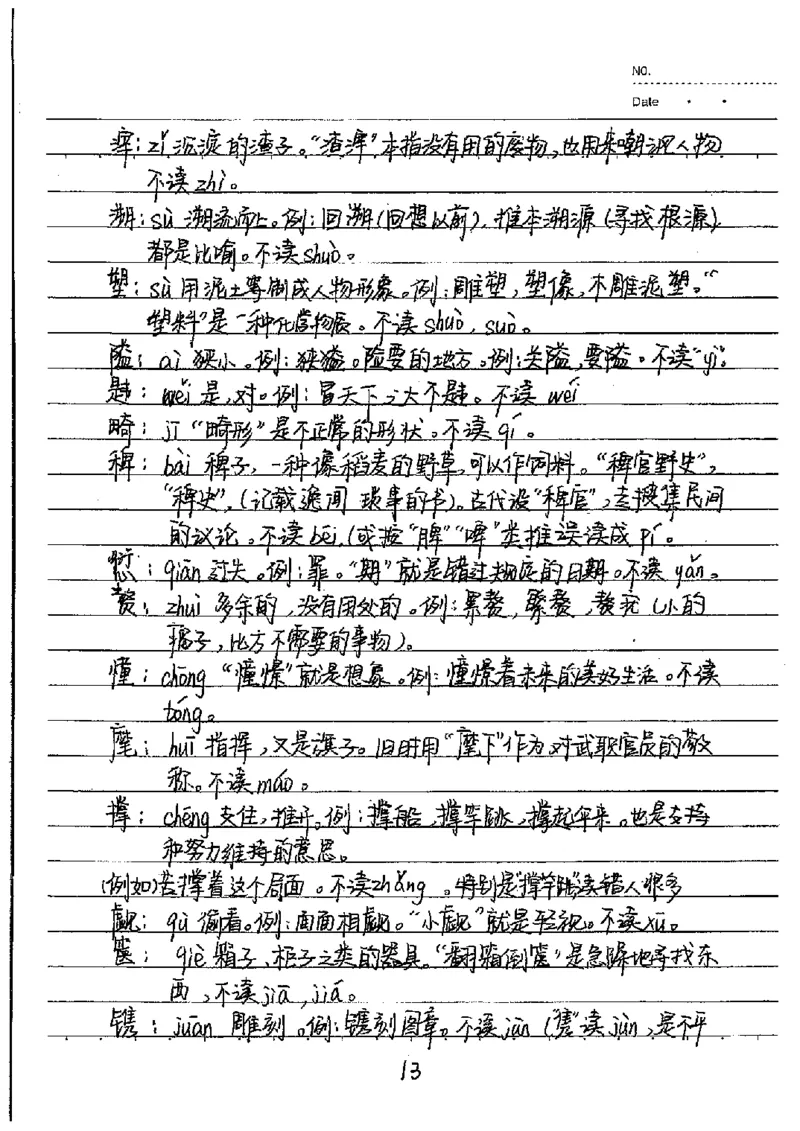 NO.
Date
滓：zǐ 沉淀的渣子。“渣滓”本指没有用的废物，也用来嘲讽人物
不读zhǐ。
溯：sù 溯流而上。例：回溯（回想以前），推本溯源（寻找根源）
都是比喻。不读shuò。
塑：sù 用泥土等制成人物形象。例：雕塑，塑像，木雕泥塑。“
塑料”是一种化学物质。不读shuò，suò。
隘：ài 狭小。例：狭隘。险要的地方。例：关隘，要隘。不读“yì”。
韪：wěi 是，对。例：冒天下之大不韪。不读wéi
畸：jī “畸形”是不正常的形状。不读qí。
稗：bài 稗子，一种像稻麦的野草，可以作饲料。“稗官野史”，
“稗史”，（记载逸闻琐事的书）。古代设“稗官”，去搜集民间
的议论。不读bēi，（或按“脾”“啤”类推误读成pí。
愆：qiān 过失。例：罪。“期”就是错过规定的日期。不读yǎn。
赘：zhuì 多余的，没有用处的。例：累赘，
，比方不需要的事物）。
憧：chōng “憧憬”就是想象。例：憧憬着未来的美好生活。不读
tóng。
麾：huī 指挥，又是旗子。旧时用“麾下”作为对武职官员的敬
称。不读máo。
撑：chēng 支住，推开。例：撑船，撑竿跳，撑起伞来。也是支持
和努力维持的意思。
（例如）苦撑着这个局面。不读zhǎng。特别是“撑竿跳”读错人很多
觑：qù 偷看。例：面面相觑。“小觑”就是轻视。不读xū。
箧：qiè 箱子、柜子之类的器具。“翻箱倒箧”是急躁地寻找东
西，不读jiā，jiá。
镌：juān 雕刻。例：镌刻图章。不读jùn（“隽”读jùn，是不平
13